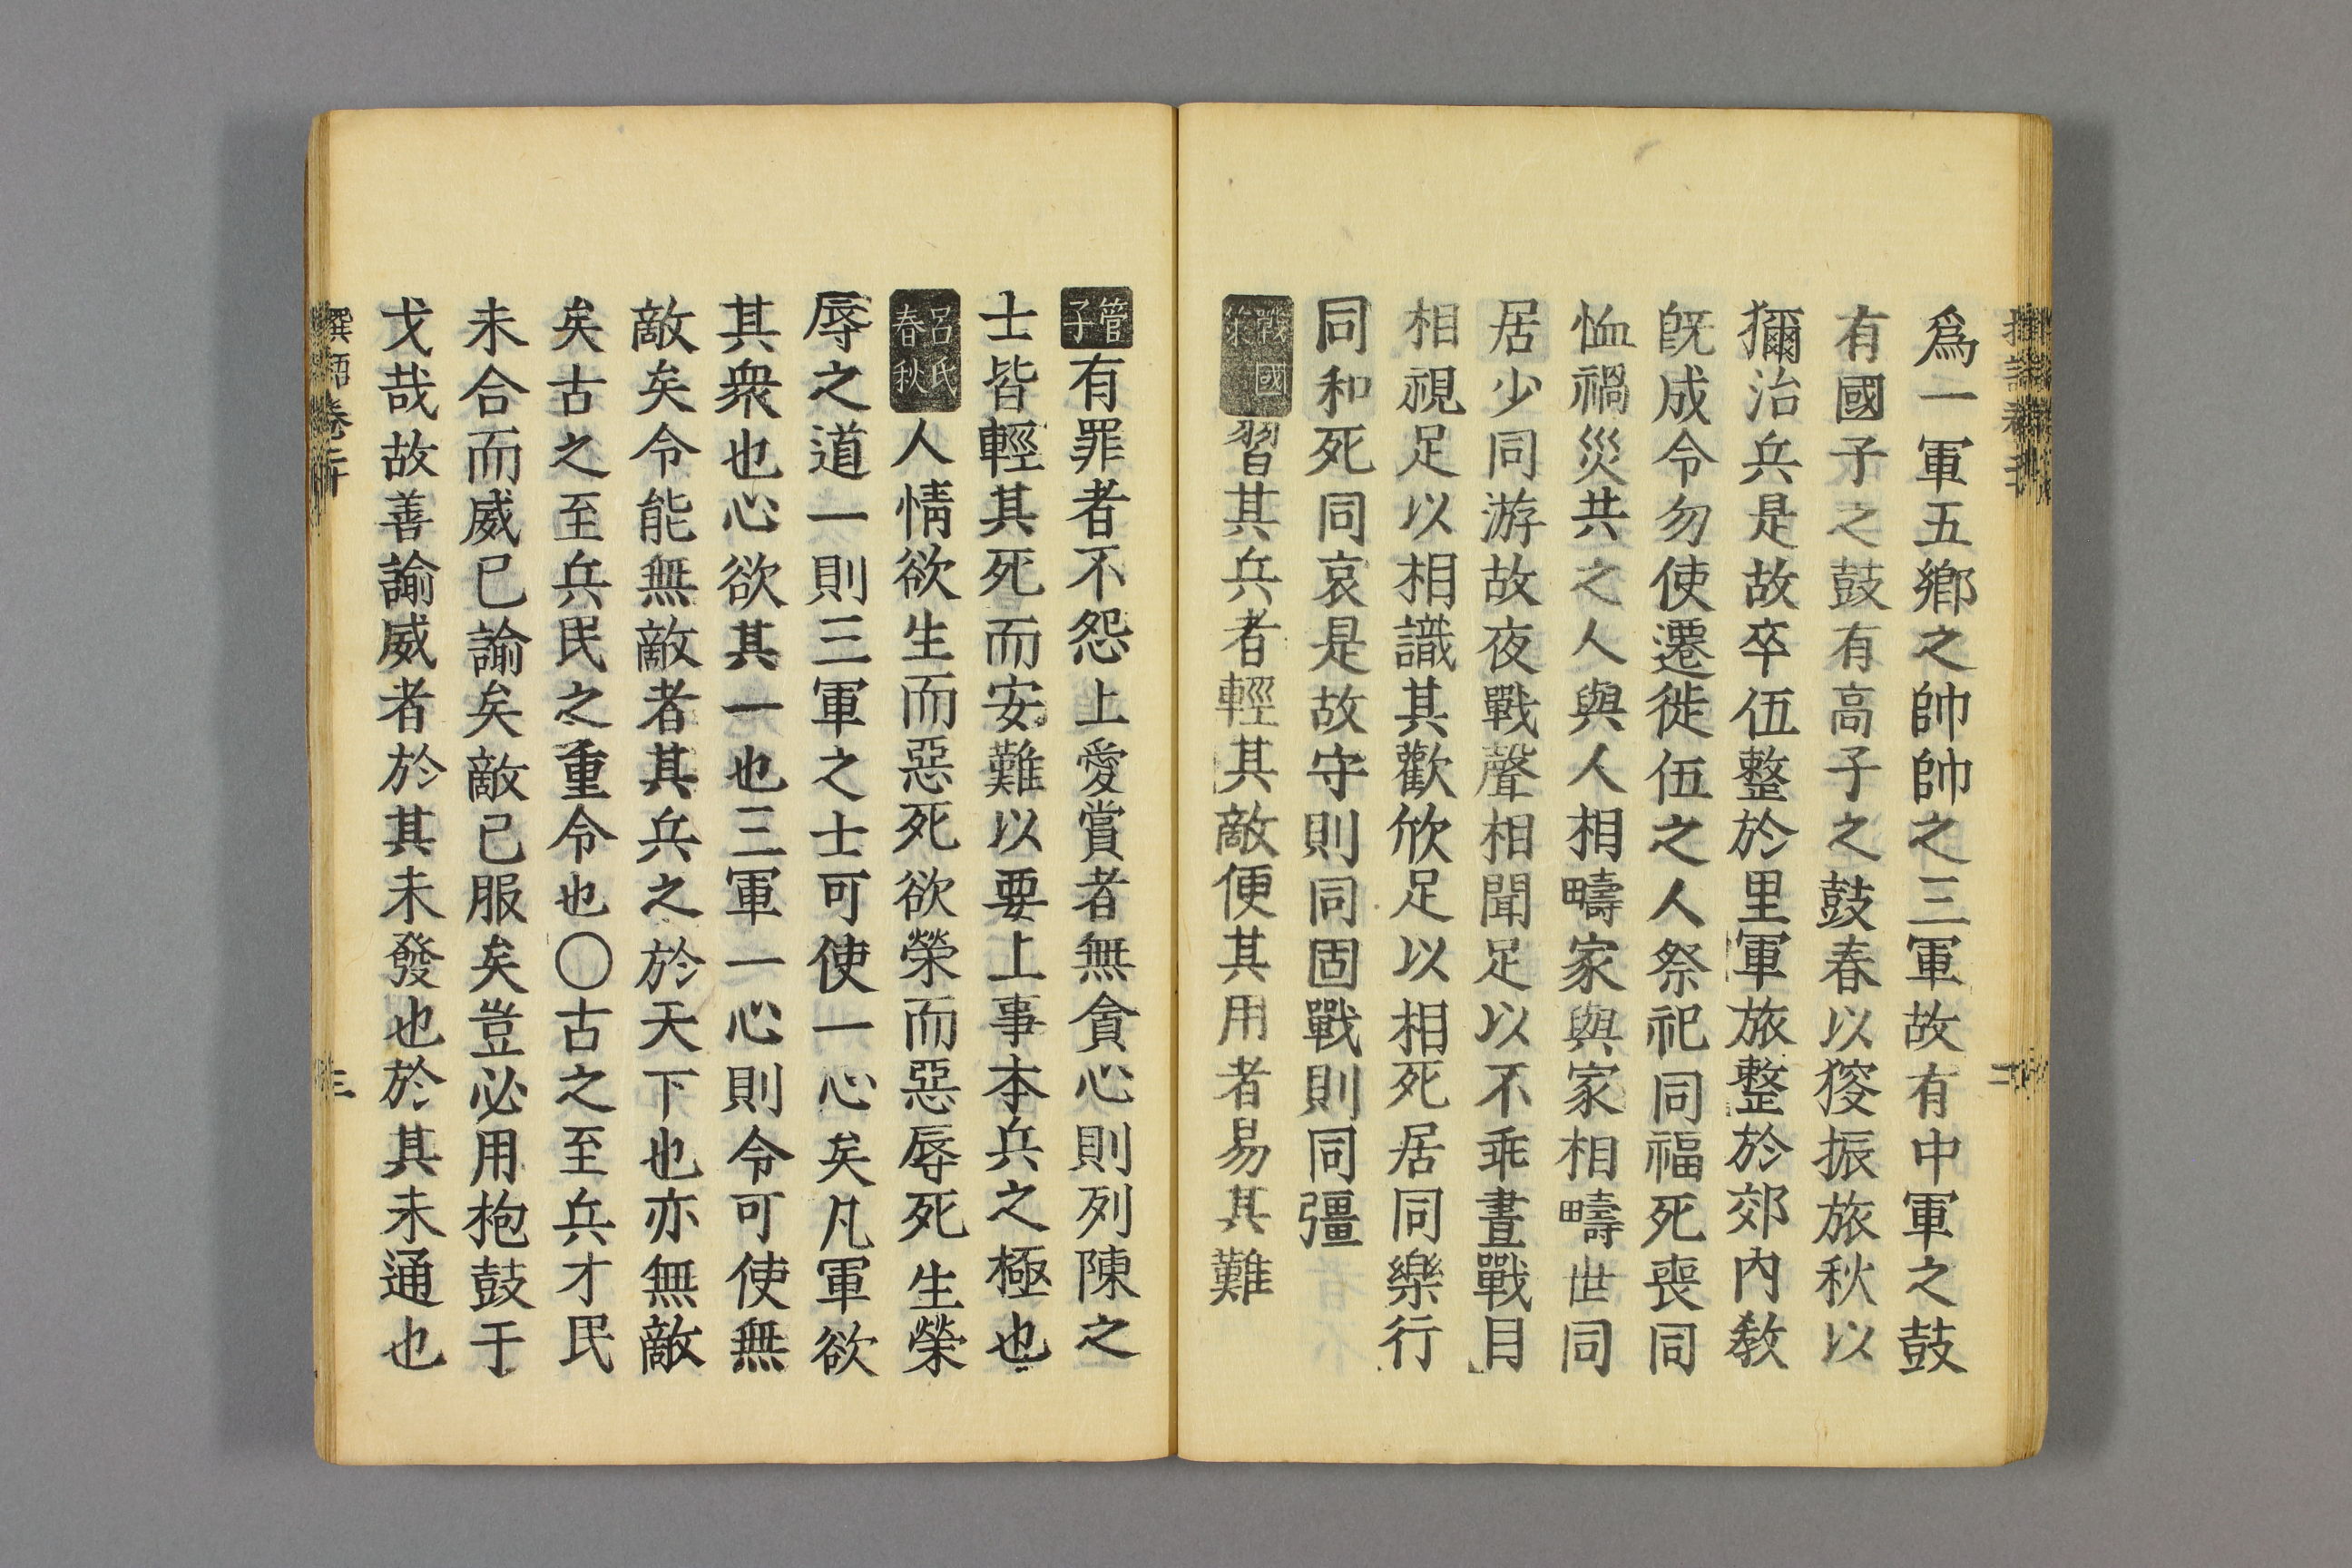 爲一軍五鄉之帥帥之三軍故有中軍之鼓
有國子之鼓有高子之鼓春以獀振旅秋以
獮治兵是故卒伍整於里軍旅整於郊内教
旣成令勿使遷徙伍之人祭祀同福死喪同
恤禍災共之人與人相疇家與家相疇世同
居少同游故夜戰聲相聞足以不乖晝戰目
相視足以相識其歡欣足以相死居同樂行
同和死同哀是故守則同固戰則同彊
戰國策習其兵者輕其敵便其用者易其難
管子有罪者不怨上愛賞者無貪心則列陳之
士皆輕其死而安難以要上事本兵之極也
呂氏春秋人情欲生而惡死欲榮而惡辱死生榮
辱之道一則三軍之士可使一心矣凡軍欲
其衆也心欲其一也三軍一心則令可使無
敵矣令能無敵者其兵之於天下也亦無敵
矣古之至兵民之重令也〇古之至兵才民
未合而威已諭矣敵已服矣豈必用枹鼓于
戈哉故善諭威者於其未發也於其未通也
卷二十
三